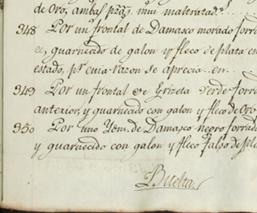 de Oro, ambas piezas muy maltratadas
348 Por un frontal de Damasco morado forr
guarnecido de galon y fleco de plata en
estado, pr. cuia razon se aprecia en
349 Por un frontal de Grizeta verde forr
anterior, y guarnecido con galon y fleco de Oro
350 Por uno Ytem. de Damasco negro forrado
y guarnecido con galon y fleco falso de pla